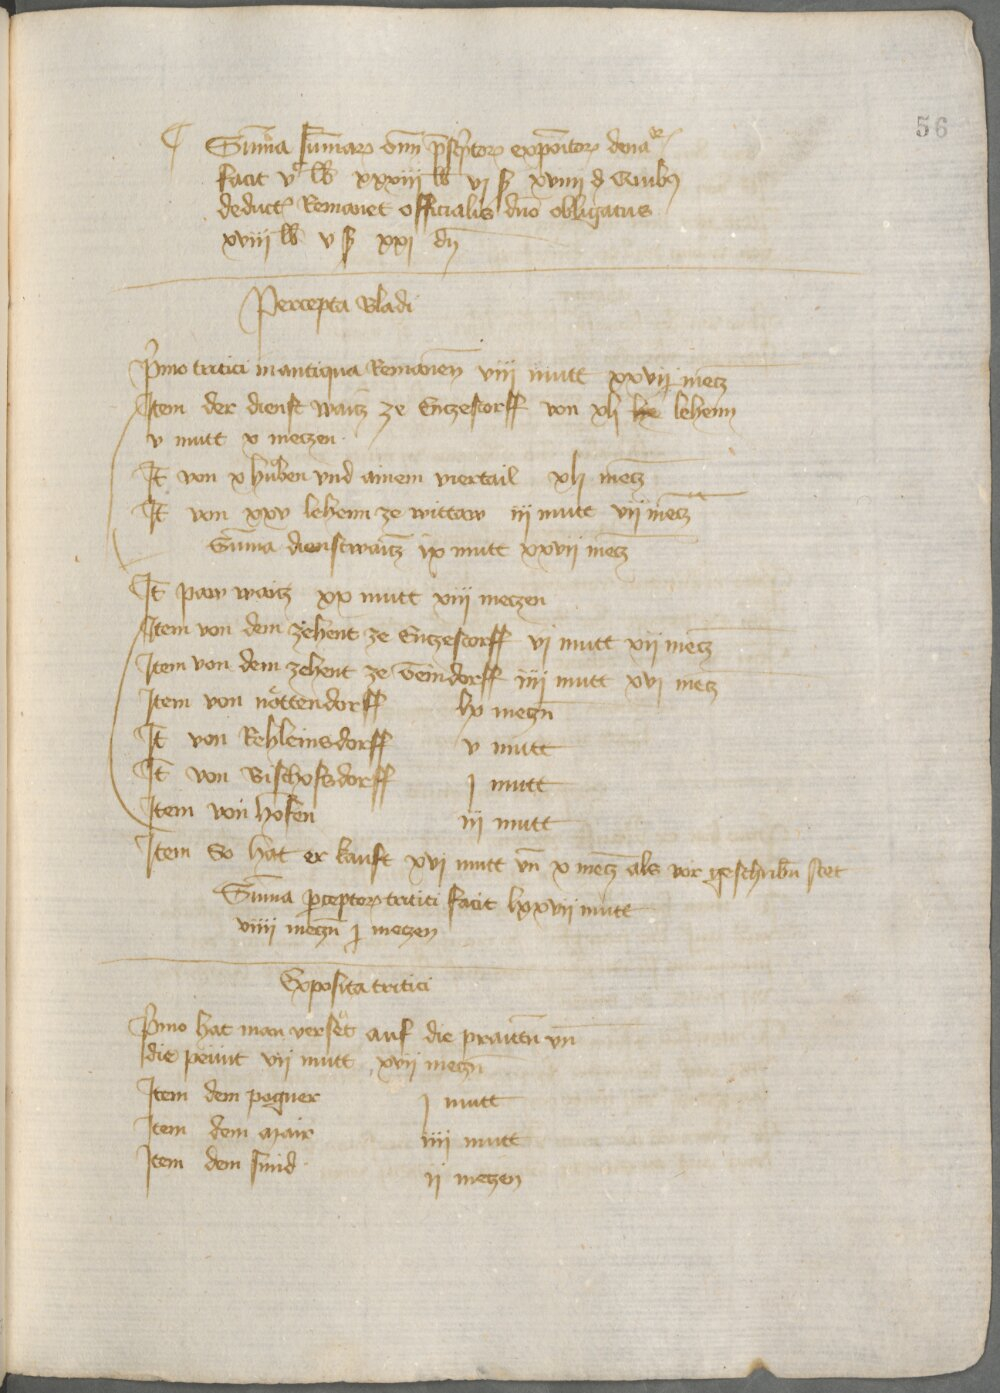 56
Sum̄a sum̄ar᷒ om̄i p̄sc̄ptor᷒ expōitor᷒ denar᷒
facit vᶜ lb xxxiii lb vi ß xviiii d Quib᷒
deduct᷒ Remanet officialis dn̄o obligatus
xviii lb v ß xxi dn̄
Percepta Bladi
P̄mo tritici in antiqua Remanen̄ viii mutt xxvij mecz
Item der dienst waicz ze Enczestorff von xlj lehenn
v mutt x meczen
It̄ von x huͦben vnd ainem viertail xlj mecz
It̄ von xxv lehenn ze wittaw iij mutt vij mecz
Sum̄a dienstwaicz ix mutt xxvii mecz
It̄ paw waicz xx mutt xiii meczen
Item von dem zehent ze Enczestorff vj mutt xij mecz
Item von dem zehent ze Teindorff iiij mutt xvj mecz
Item von nöttendorff lx meczn̄
It̄ von Rehleinsdorff v mutt
It̄ von Bischofsdorff j mutt
Item von hofen iij mutt
Item So hat er kauft xvj mutt vn̄ x mecz als vor geschribn̄ stet
Sum̄a p̄ceptor᷒ tritici facit lxxvii mutt
viiii meczn̄ j meczen
Exposita tritici
P̄mo hat man verset auf die praittn̄ vn̄
die peunt vii mutt xvij meczn̄
Item dem pogner j mutt
Item dem mair iiij mutt
Item dem smid ij meczen